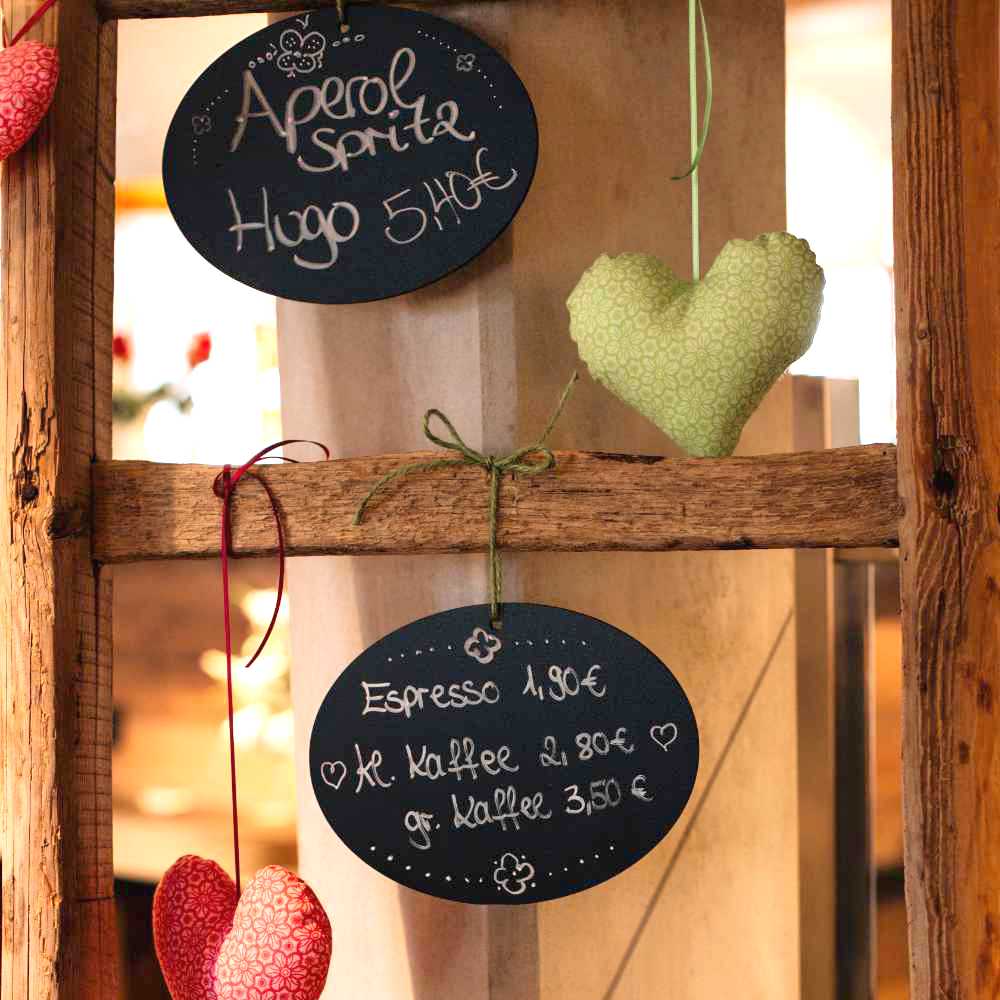 Aperol
Spritz
Hugo 5,40€
Espresso 1,90€
kl. Kaffee 2,80€
gr. Kaffee 3,50 €